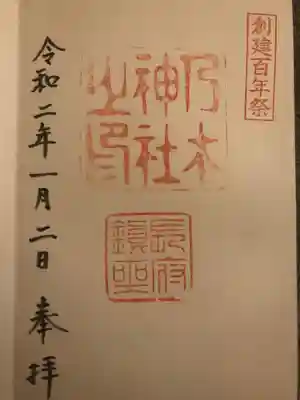 創建百年祭
乃木
神社
之印
長府
鎮聖
令和二年一月二日 奉拝